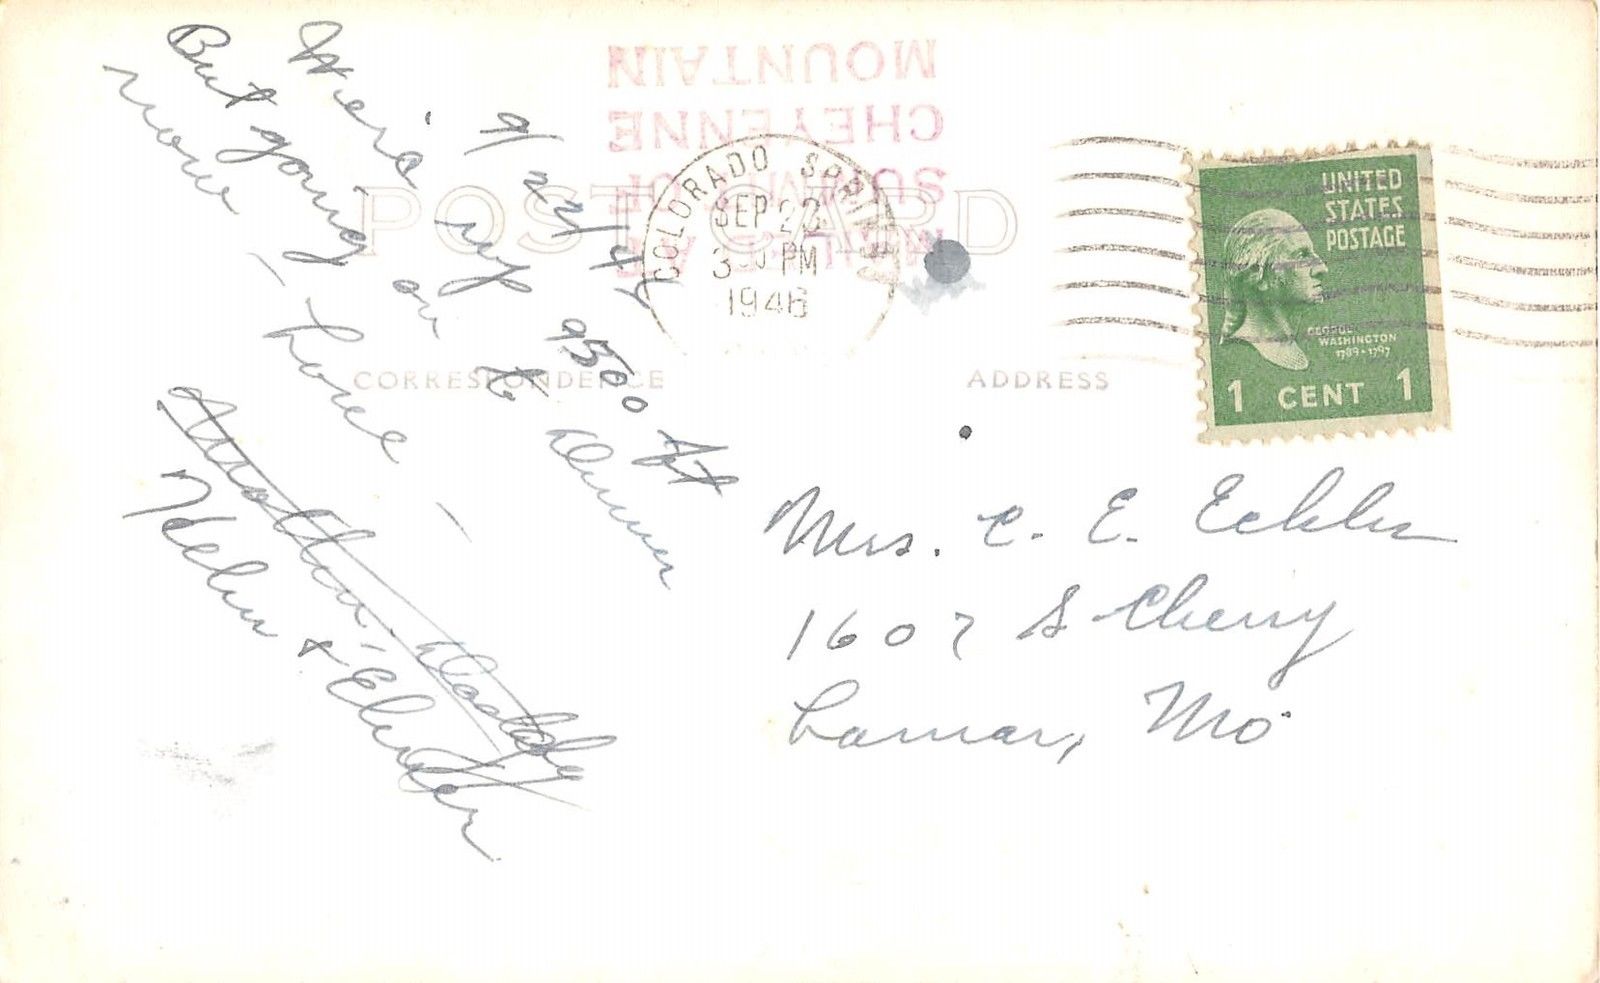 9/22/46
We're up 9500 ft
But going on to Denver
now - Love -
Helen &
POST CARD
CORRESPONDENCE
ADDRESS
MAILED AT
SUMMIT OF
CHEYENNE
MOUNTAIN
COLORADO SPRINGS
SEP 23
3 30 PM
1946
UNITED
STATES
POSTAGE
GEORGE
WASHINGTON
1789 · 1797
1 CENT 1
Mrs. C. E.
1607 S Cherry
Lamar, Mo